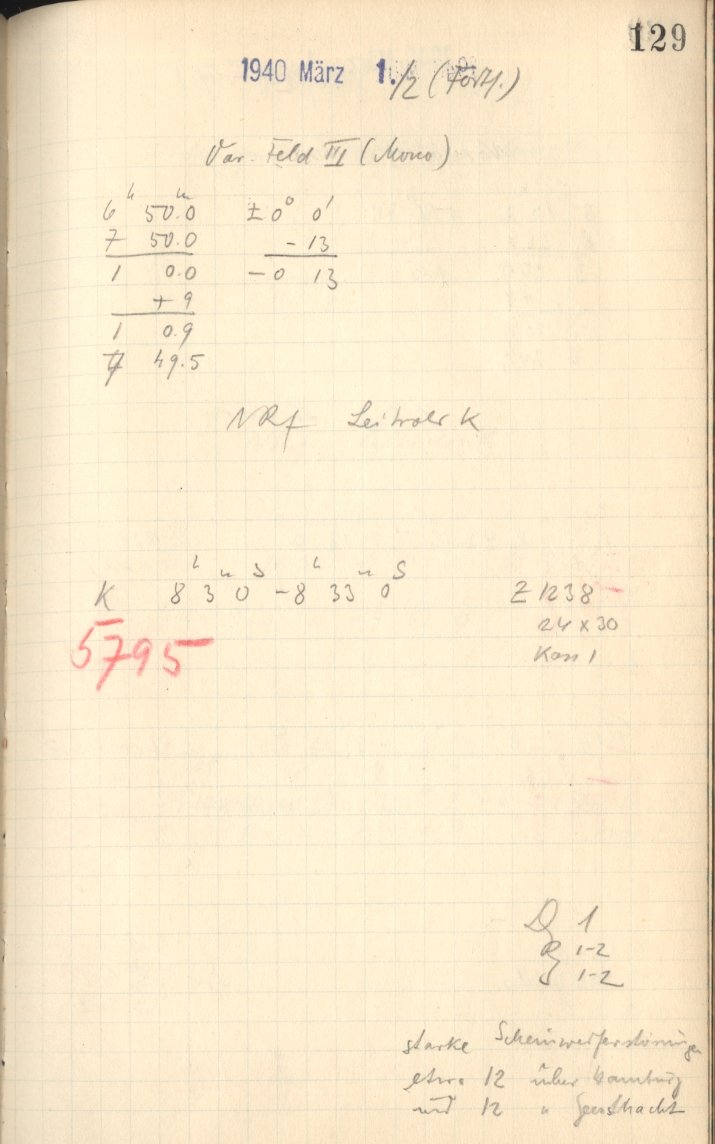 129
1940 März 1./2 (Forts.)
Var. Feld III (Mono)
6ʰ 50.0ᵐ ± 0° 0'
7 50.0 - 13
1 0.0 - 0 13
+ 9
1 0.9
49.5
NRf Leitrohr K
K 8ʰ 3ᵐ 0ˢ - 8ʰ 33ᵐ 0ˢ Z 1238
5795
24 x 30
Kass 1
D 1
R 1-2
J 1-2
starke Scheinwerferstörungen
etwa 12 über Hamburg
und 12 " Geesthacht